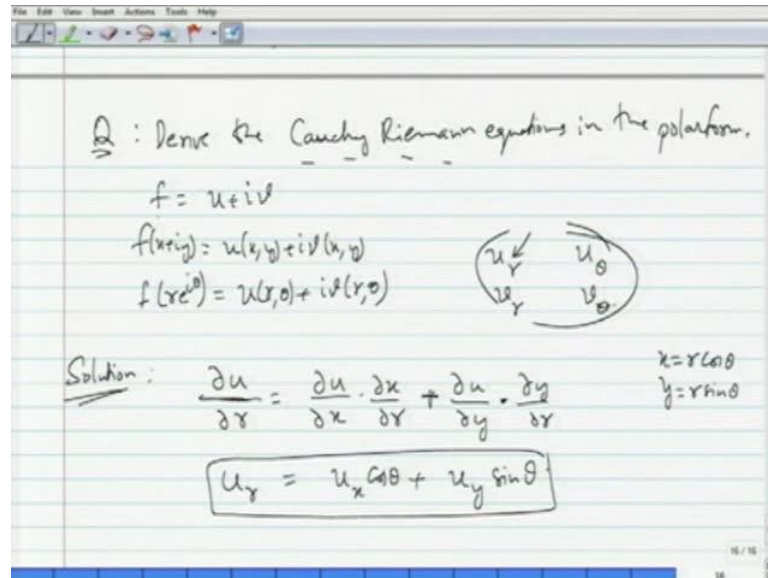 File Edit View Insert Actions Tools Help
Q : Derive the Cauchy Riemann equations in the polarform.
f = u+iv
f(x+iy) = u(x,y)+iv(x,y)
f(re^{iθ}) = u(r,θ)+iv(r,θ)
u_r u_θ
v_r v_θ
Solution : ∂u/∂r = ∂u/∂x · ∂x/∂r + ∂u/∂y · ∂y/∂r
x = r cosθ
y = r sinθ
u_r = u_x cosθ + u_y sinθ
16 / 16
16